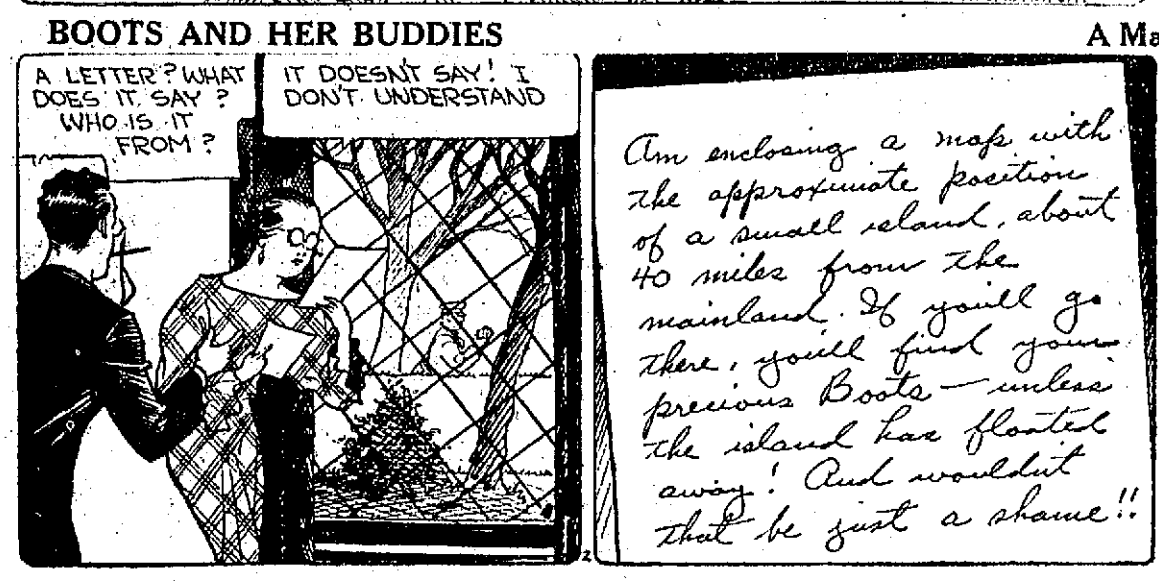 BOOTS AND HER BUDDIES
A Ma
A LETTER? WHAT
DOES IT SAY?
WHO IS IT
FROM?
IT DOESN'T SAY! I
DON'T UNDERSTAND
Am enclosing a map with
the approximate position
of a small island, about
40 miles from the
mainland. If you'll go
there, you'll find your
precious Boots — unless
the island has floated
away! And wouldn't
that be just a shame!!